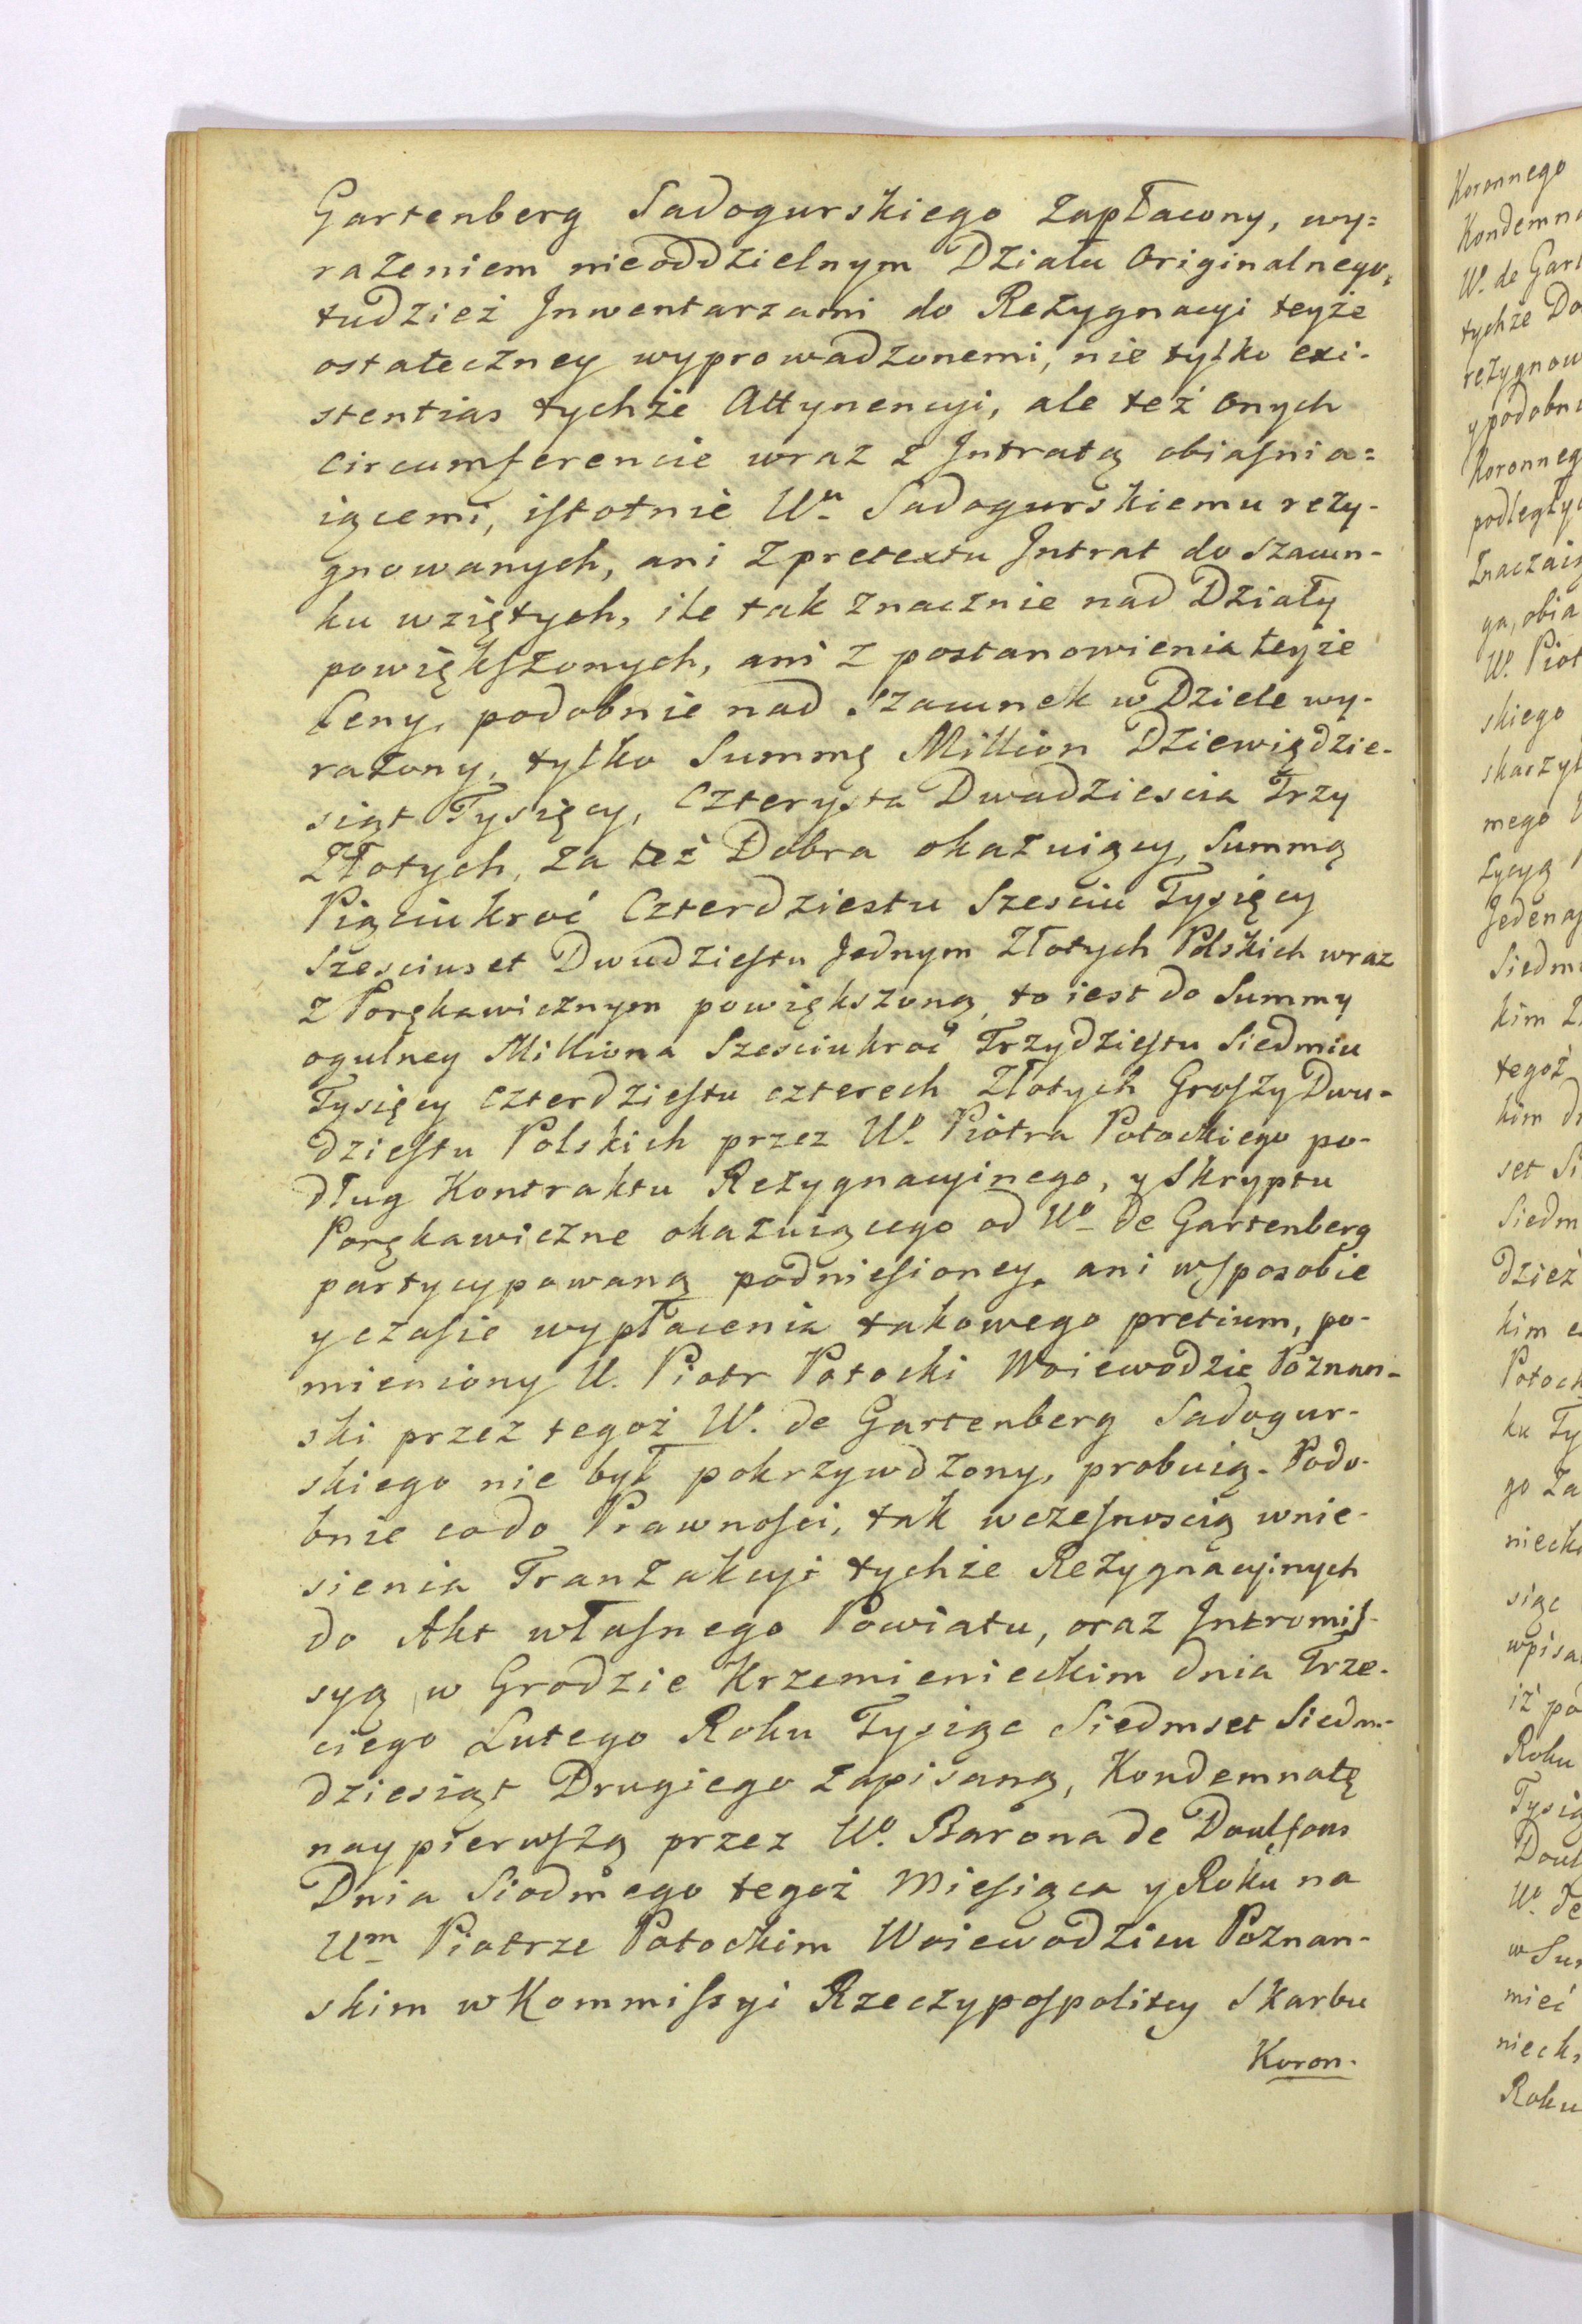 Gartenberg Sadogurskiego zapłacony, wy=
rażeniem nieoddzielnym Działu Originalnego,
tudzież Jnwentarzami do Rezygnacyi teyże
ostateczney wyprowadzonemi, nie tylko exi-
stentias tychże Attynencyi, ale też onych
circumferencie wraz z Jntratą obiaſnia=
iącemi, iſtotnie Uu Sadogurskiemu rezy-
gnowanych, ani z pretextu Jntrat do szacun-
ku wziętych, ile tak znacznie nad Działy
powiękſzonych, ani z postanowienia teyże
Ceny, podobnie nad szacunek w Dziele wy-
rażony, tylko Summę Million Dziewiędzie-
siąt Tysięcy, Czterysta Dwadziescia Trzy
Złotych, za też Dobra okazuiący, Summą
Pięciukroć Czterdziestu Szesciu Tysięcy
Szesciuset Dwudzieſtu Jednym Złotych Polskich wraz
z Porękawicznym powiększoną, to iest do Summy
ogulney Milliona Szesciukroć Trzydzieſtu Siedmiu
Tysięcy czterdzieſtu czterech Złotych Groſzy Dwu-
dzieſtu Polskich przez Uo Piotra Potockiego po-
dług Kontraktu Rezygnacyinego, y Skryptu
Porękawiczne okazuiącego od Uo de Gartenberg
partycypowaną podnieſioney, ani wſposobie
y czaſie wypłacenia takowego pretium, po-
mieniony U. Piotr Potocki Woiewodzic Poznan-
ski przez tegoż W. de Gartenberg Sadogur-
skiego nie był pokrzywdzony, probuią. Podo-
bnie co do Prawnoſci, tak wczeſnoscią wnie-
sienia Tranzakcyi tychże Rezygnacyinych
do Akt własnego Powiatu, oraz Jntromiſ-
syą w Grodzie Krzemienieckim dnia Trze-
ciego Lutego Roku Tysiąc Siedmset Siedm-
dziesiąt Drugiego zapisaną, Kondemnatę
naypierwſzą przez Uo Barona de Doulſons
Dnia Siodmego tegoż Mieſiąca y Roku na
Um Piotrze Potockim Woiewodzicu Poznan-
skim w Kommiſsyi Rzeczypoſpolitey Skarbu
Koron-
Koronnego
W. de
tychże
podległy
W. Piot
skiego
mego
Siedm
kim
tegoż
kim
set Si
Siedm
dzież
kim
Potock
ku Ty
go za
siąc
iż
Roku
W. de
mieć
Roku